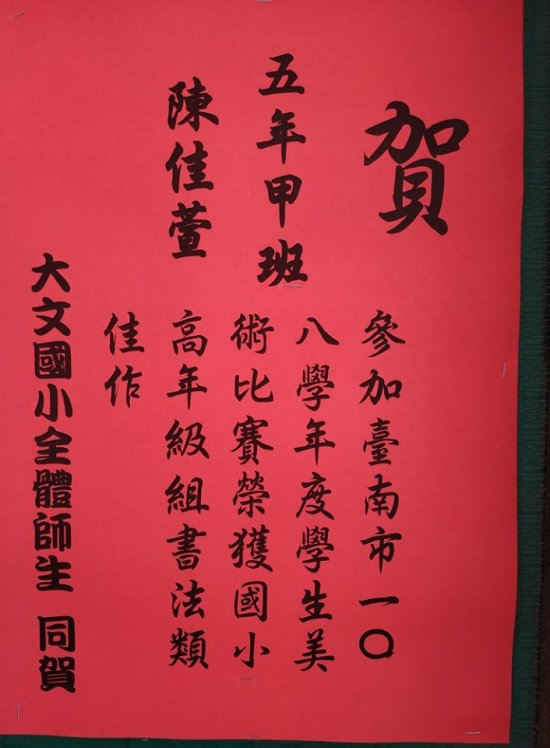 賀
五年甲班
陳佳萱
參加臺南市一〇
八學年度學生美
術比賽榮獲國小
高年級組書法類
佳作
大文國小全體師生 同賀